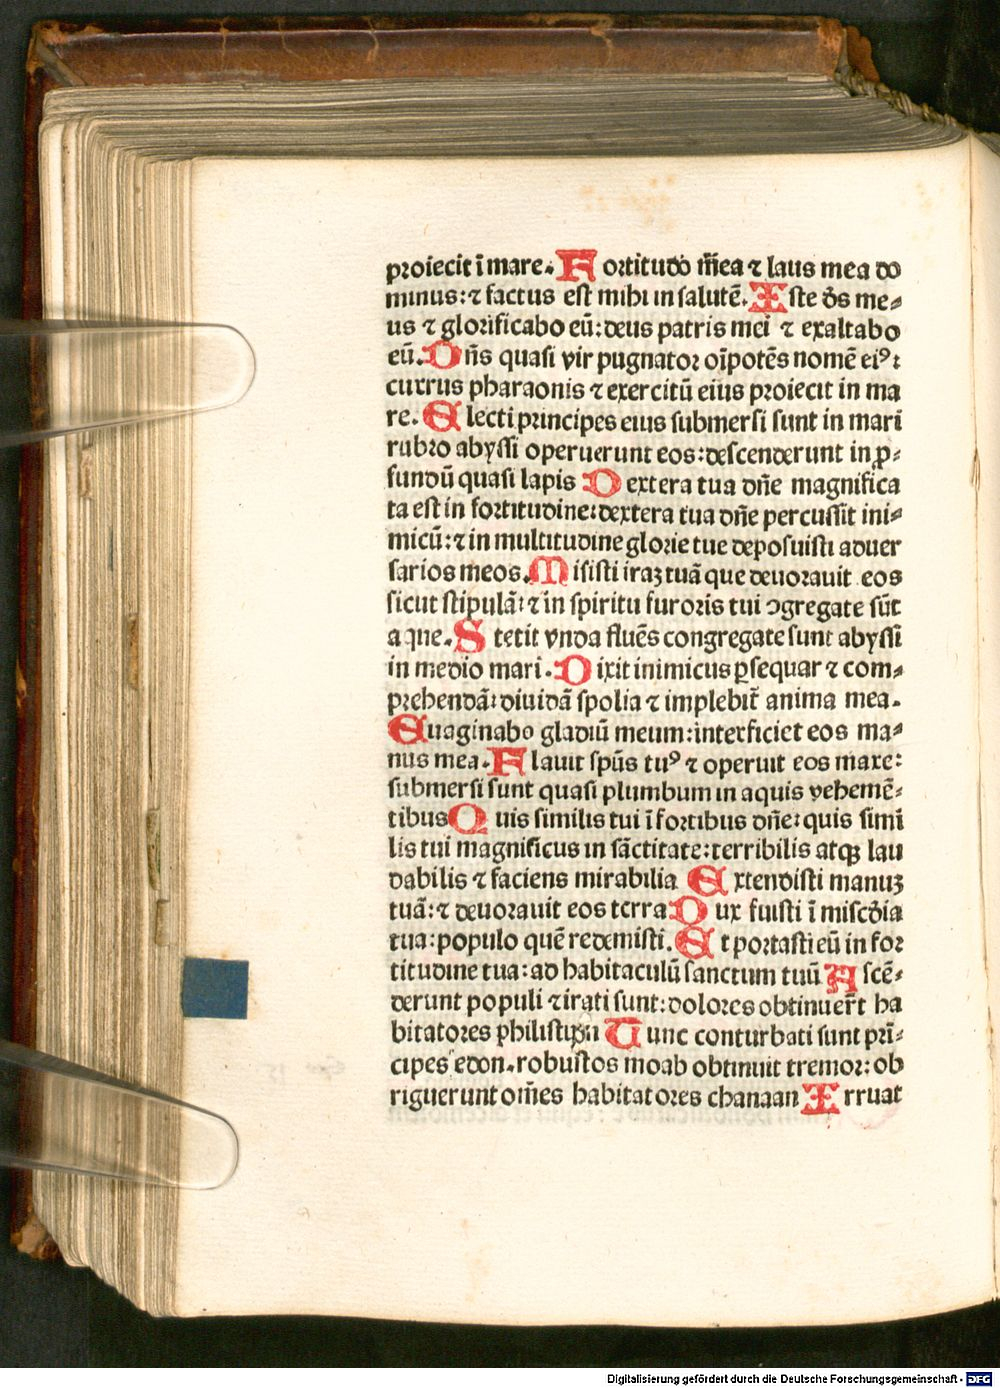 proiecit ī mare. Fortitudo m̄ea ⁊ laus mea do
minus: ⁊ factus est mihi in salutē. Iste ds̄ me⸗
us ⁊ glorificabo eū: deus patris mei ⁊ exaltabo
eū. Dn̄s quasi vir pugnator oīpotēs nomē eiꝰ:
currus pharaonis ⁊ exercitū eius proiecit in ma
re. Electi principes eius submersi sunt in mari
rubro abyssi operuerunt eos: descenderunt in ꝓ⸗
fundū quasi lapis Dextera tua dn̄e magnifica
ta est in fortitudine: dextera tua dn̄e percussit ini⸗
micū: ⁊ in multitudine glorie tue deposuisti aduer
sarios meos. Misisti iraꝫ tuā que deuorauit eos
sicut stipulā: ⁊ in spiritu furoris tui ↄgregate sūt
aque. Stetit vnda fluēs congregate sunt abyssi
in medio mari. Dixit inimicus ꝑsequar ⁊ com⸗
prehendā: diuidā spolia ⁊ implebit̄ anima mea.
Euaginabo gladiū meum: interficiet eos ma⸗
nus mea. Flauit spūs tuꝰ ⁊ operuit eos mare:
submersi sunt quasi plumbum in aquis vehemē⸗
tibus Quis similis tui ī fortibus dn̄e: quis simi
lis tui magnificus in sāctitate: terribilis atqꝫ lau
dabilis ⁊ faciens mirabilia Extendisti manuꝫ
tuā: ⁊ deuorauit eos terra Dux fuisti ī misc̄dia
tua: populo quē redemisti. Et portasti eū in for
titudine tua: ad habitaculū sanctum tuū Ascē⸗
derunt populi ⁊ irati sunt: dolores obtinuer̄t ha
bitatores philistijn Tunc conturbati sunt prī⸗
cipes edon. robustos moab obtinuit tremor: ob
riguerunt om̄es habitatores chanaan Irruat
Digitalisierung gefördert durch die Deutsche Forschungsgemeinschaft - DFG